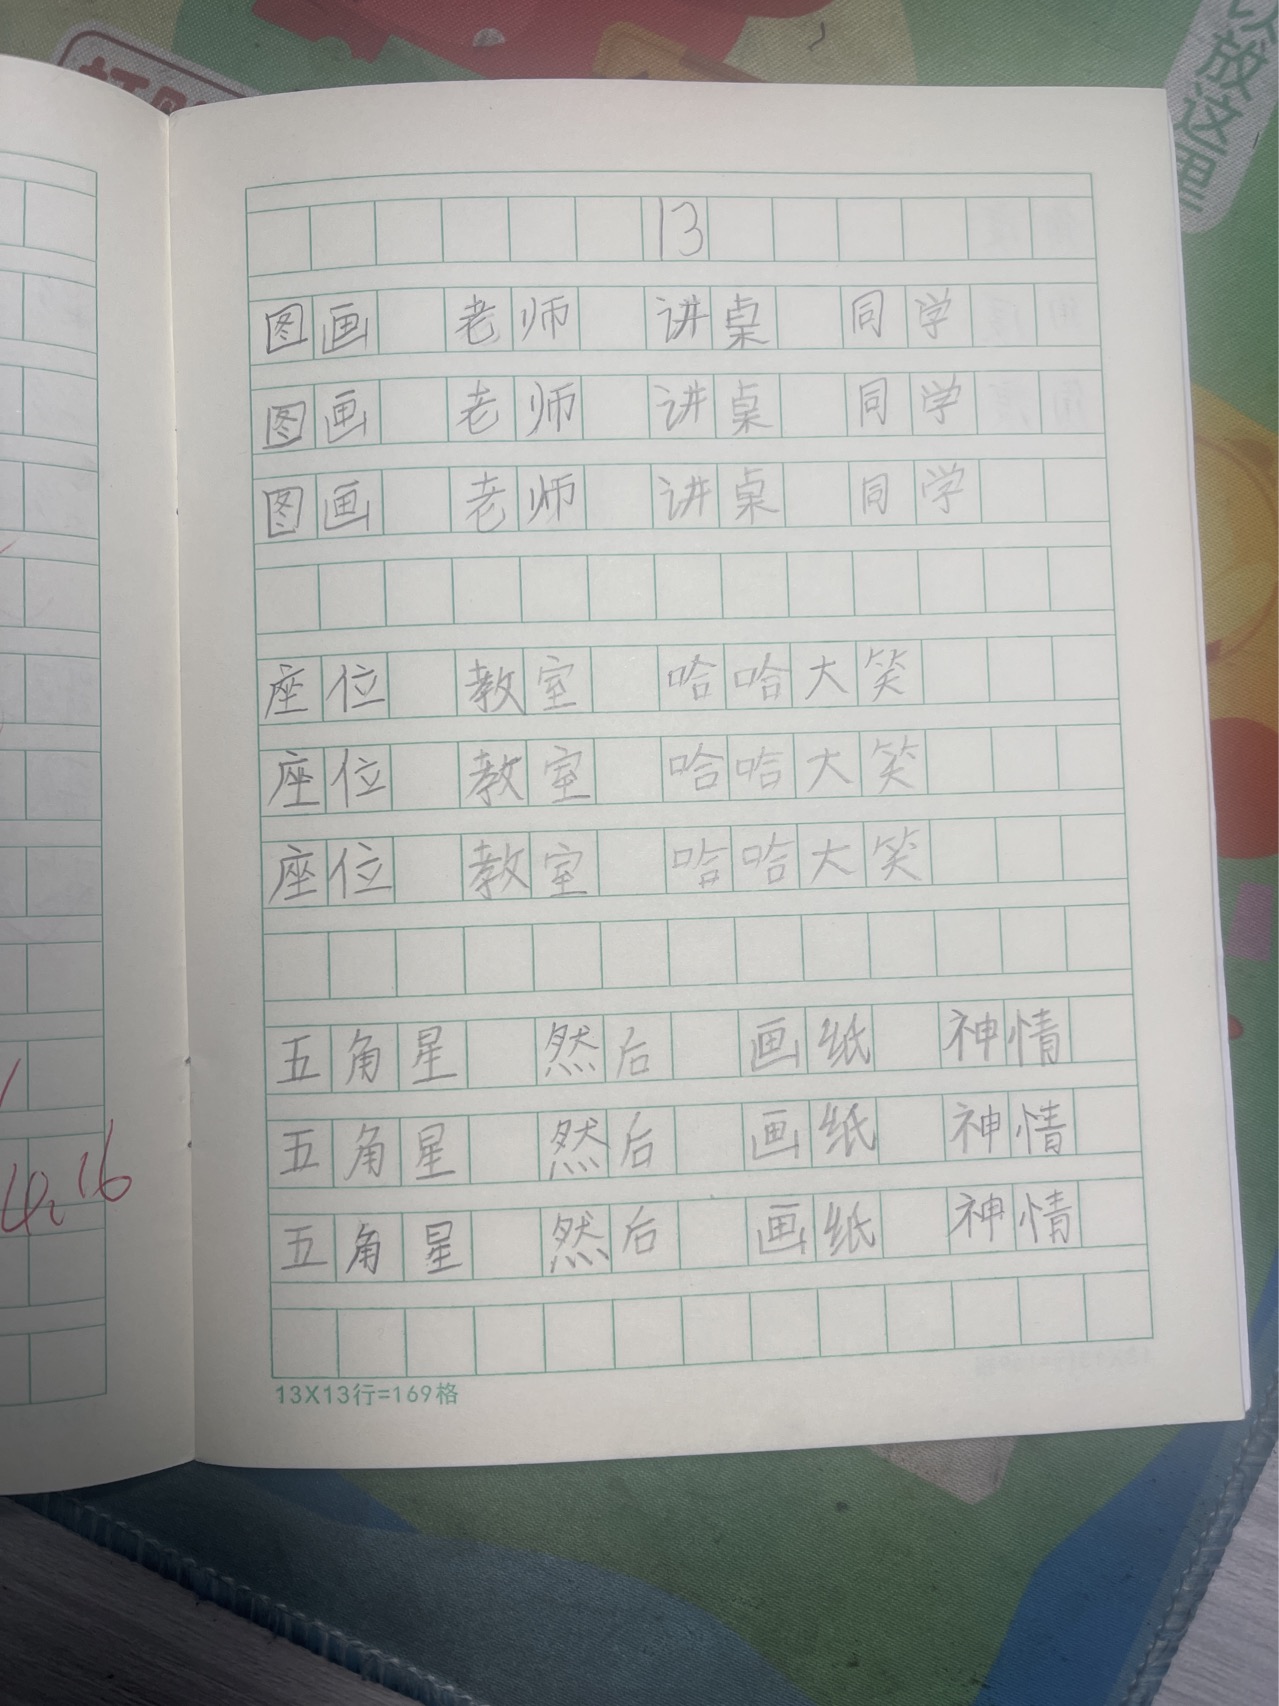 放这里
13
图画 老师 讲桌 同学
图画 老师 讲桌 同学
图画 老师 讲桌 同学
座位 教室 哈哈大笑
座位 教室 哈哈大笑
座位 教室 哈哈大笑
五角星 然后 画纸 神情
五角星 然后 画纸 神情
五角星 然后 画纸 神情
13X13行=169格
4.16